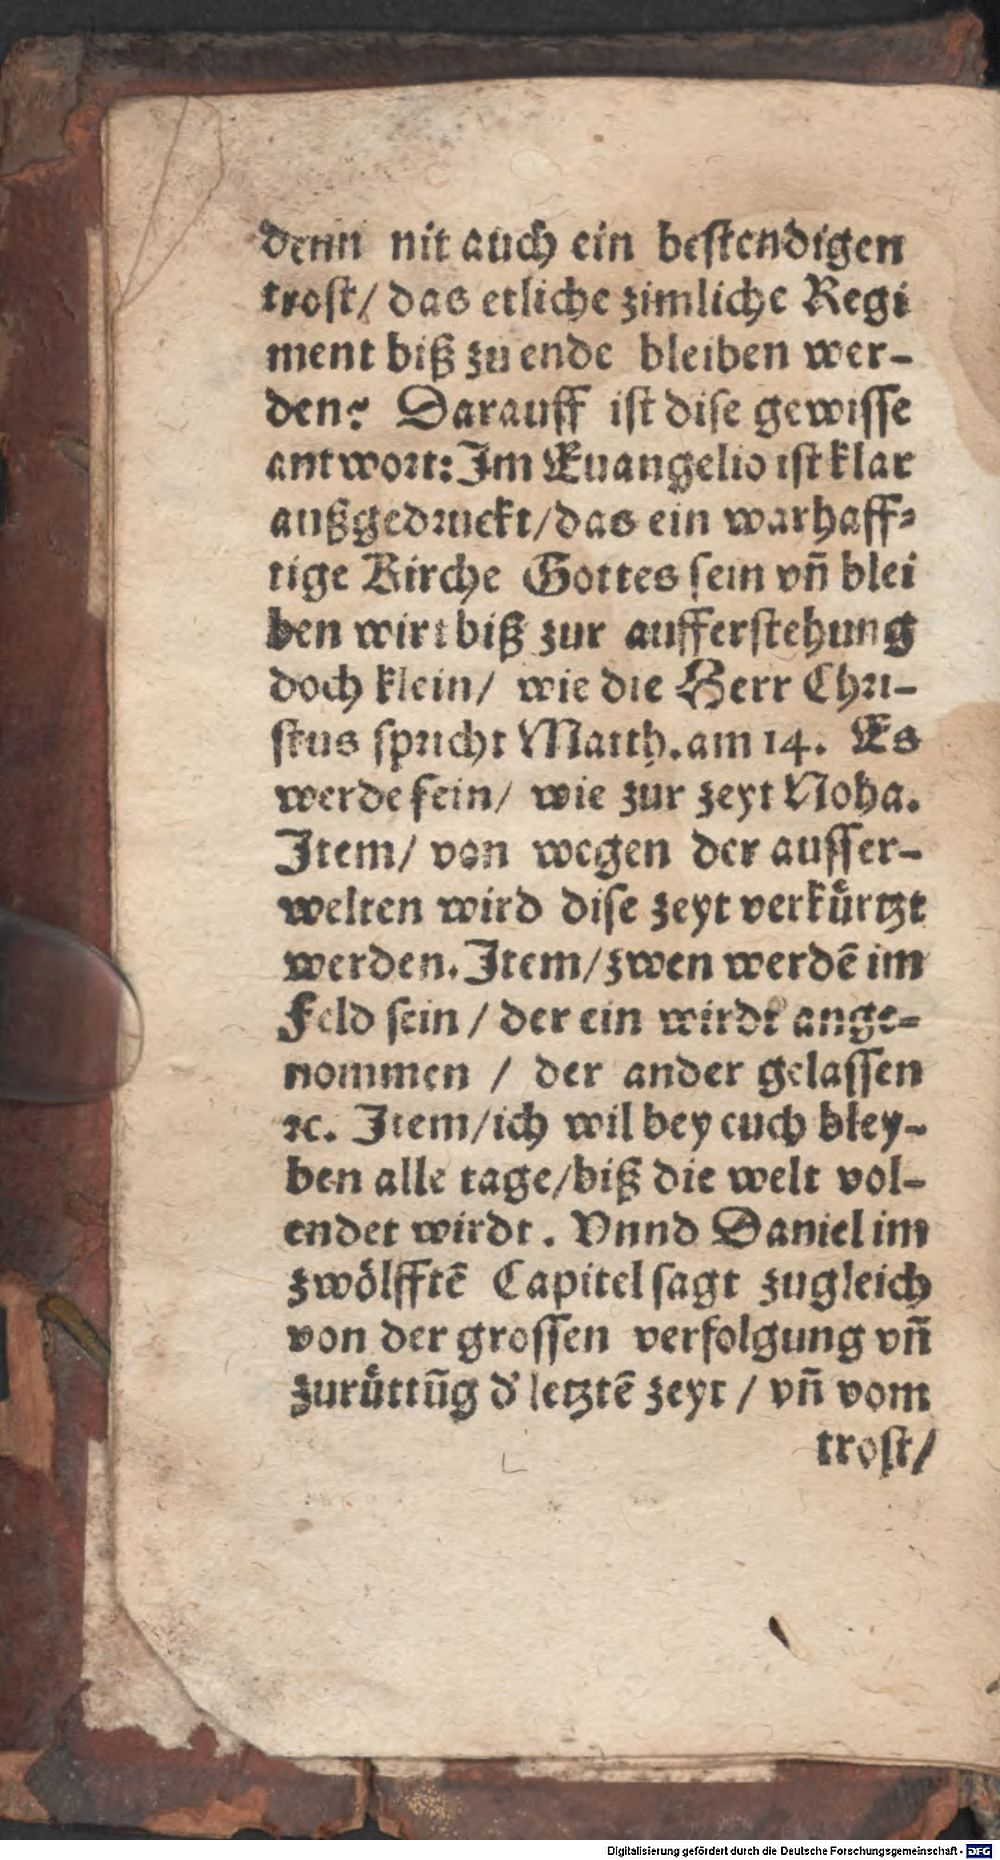 denn nit auch ein bestendigen
trost/ das etliche zimliche Regi
ment biß zu ende bleiben wer-
den? Darauff ist dise gewisse
antwort: Im Euangelio ist klar
außgedruckt/das ein warhaff-
tige Kirche Gottes sein vñ blei
ben wirt biß zur aufferstehung
doch klein/ wie die Herr Chri-
stus spricht Matth. am 14. Es
werde sein/ wie zur zeyt Noha.
Item/ von wegen der ausser-
welten wird dise zeyt verkuͤrtzt
werden. Item/zwen werdē im
Feld sein / der ein wirdt ange-
nommen / der ander gelassen
ꝛc. Item/ich wil bey euch bley-
ben alle tage/biß die welt vol-
endet wirdt. Vnnd Daniel im
zwoͤlfftē Capitel sagt zugleich
von der grossen verfolgung vñ
zuruͤttūg d' letztē zeyt / vñ vom
trost/
Digitalisierung gefördert durch die Deutsche Forschungsgemeinschaft - DFG